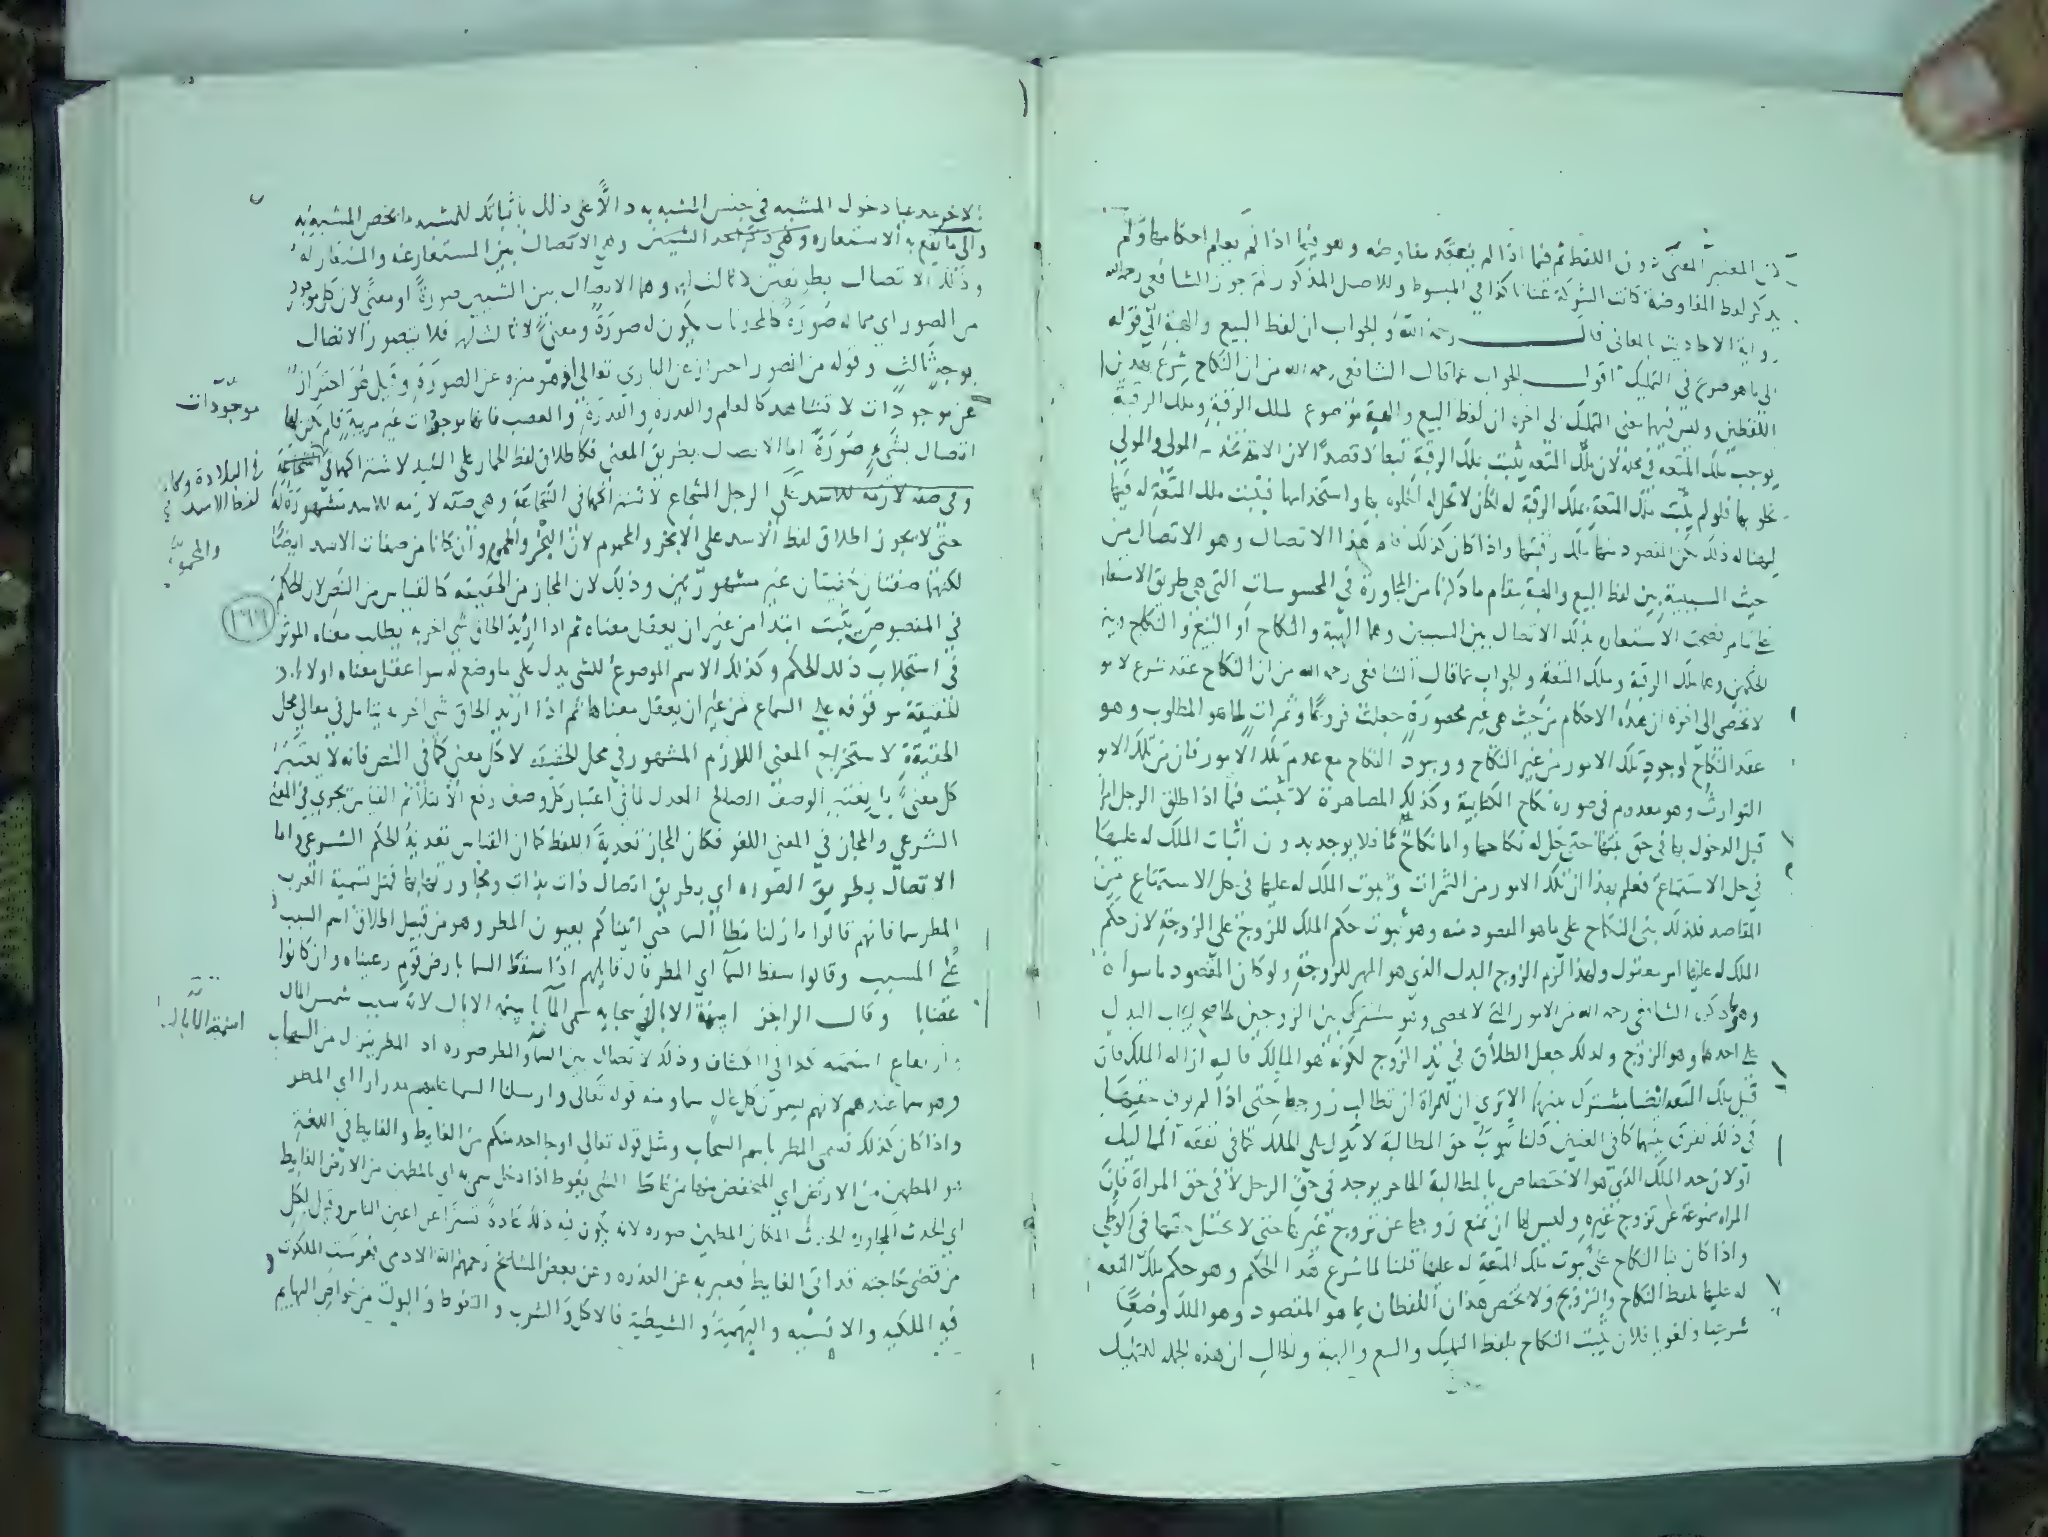 لان المعتبر المعنى دون اللفظ ثم فيما اذا لم ينعقد مفاوضه وهو فيما اذا لم يعلم احكامها ولم
يذكر لفظ المفاوضة كانت الشركة عنانا كذا في المبسوط وللاصل المذكور جوز الشافعي رحمه الله
رواية الاحاديث بالمعاني قال رحمه الله والجواب ان لفظ البيع والهبة الى قوله
الى ما هو صريح في التمليك اقول الجواب عما قال الشافعي رحمه الله من ان النكاح شرع بهذين
اللفظين وليس فيهما معنى التمليك الى اخره ان لفظ البيع والهبة موضوع لملك الرقبة وملك الرقبة
يوجب ملك المتعه في محله لان ملك المتعه يثبت بملك الرقبة تبعا لا قصدا لان المولى
يخلو بها فلو لم يثبت ملك المتعة بملك الرقبة له لكان لا تحل له الخلوه بها واستخدامها فيثبت ملك المتعة له فيها
ليهنا له ذلك المقصود منها بملك رقبتها واذا كان كذلك قام هذا الاتصال وهو الاتصال من
حيث السببية بين لفظ البيع والهبة مقام ما ذكرنا من المجاورة في المحسوسات التي هي طريق الاستعار
على ما مر فصحت الاستعاره بذلك الاتصال بين السببين وهما الهبة والنكاح او البيع والنكاح وبين
الحكمين وهما ملك الرقبة وملك المتعة والجواب عما قال الشافعي رحمه الله من ان النكاح عقد شرع لامو
لا تحصى الى اخره ان هذه الاحكام من حيث هي غير محصورة جعلت فروعا وثمرات لما هو المطلوب وهو
عقد النكاح لوجود تلك الامور من غير النكاح ووجود النكاح مع عدم تلك الامور فان من تلك الامو
التوارث وهو معدوم في صورة نكاح الكتابية وكذلك المصاهرة لا تثبت فيما اذا طلق الرجل امرا
قبل الدخول بها في حق بنتها حتى حل له نكاحها واما نكاح ما فلا يوجد بدون اثبات الملك له عليها
في حل الاستمتاع فعلم بهذا ان تلك الامور من الثمرات وثبوت الملك له عليها في حل الاستمتاع من
المقاصد فلذلك بني النكاح على ما هو المقصود منه وهو ثبوت حكم الملك للزوج على الزوجة لان حكم
الملك له عليها امر معقول ولهذا لزم الزوج البدل الذي هو المهر للزوجة ولو كان المقصود ما سواه
وهو ما ذكر الشافعي رحمه الله من الامور التي لا تحصى وهو مشترك بين الزوجين لما صح ايجاب البدل
على احدهما وهو الزوج ولذلك جعل الطلاق في يد الزوج لكونه هو المالك فاليه ازالة الملك فان
قيل ملك المتعه ايضا مشترك بينهما الا ترى ان للمراة ان تطالب زوجها حتى اذا لم يوف حقها
في ذلك نفرق بينهما كما في العنين قلنا ثبوت حق المطالبة لا يدل على الملك كما في نفقة المماليك
او لان حد الملك الذي هو الاختصاص بالمطالبة الحاجر يوجد في حق الرجل لا في حق المراة فان
المراه ممنوعة عن تزوج غيره وليس لها ان تمنع زوجها عن تزوج غيرها حتى لا يختل حقها في الوطي
واذا كان بنا النكاح على ثبوت ملك المتعة له عليها قلنا لما شرع هذا الحكم وهو حكم ملك المتعه
له عليها بلفظ النكاح والتزويج ولا يختص هذان اللفظان بما هو المقصود وهو الملك وضعا
شرعيا ولغويا فلان يثبت النكاح بلفظ التمليك والبيع والهبة والحال ان هذه الجمله للتمليك
دخول المشبه في جنس المشبه به دالا على ذلك باثباتك للمشبه ما يخص المشبه به
والى ما يقع به الاستعاره وهي ذكر احد الشيئين وهو الاتصال بين المستعار عنه والمستعار له
وذلك الاتصال بطريقين لا ثالث لهما وهما الاتصال بين الشيئين صورة او معنى لان كل موجود
من الصور اي مما له صورة كالمحدثات يكون له صورة ومعنى لا ثالث لهما فلا يتصور الاتصال
بوجه ثالث وقوله من الصور احتراز عن الباري تعالى اذ هو منزه عن الصورة وقيل هو احتراز
عن موجودات لا تشاهد كالعلم والقدرة والغضب فانها موجودات غير مرئية فلم يكن لها
اتصال بشيء صورة اما الاتصال بطريق المعنى فكاطلاق لفظ الحمار على البليد لاشتراكهما في
وهي صفة لازمة للاسد على الرجل الشجاع لاشتراكهما في الشجاعة وهي صفه لازمه للاسد مشهورة له
حتى لا يجوز اطلاق لفظ الاسد على الابخر والمحموم لان البخر والحمى وان كانا من صفات الاسد ايضا
لكنهما صفتان خفيتان غير مشهورتين وذلك لان المجاز من الحقيقه كالقياس من النص لان الحكم
في المنصوص يثبت ابتدا من غير ان يعقل معناه ثم اذا اريد الحاق شي اخر به يطلب معناه الموثر
في استجلاب ذلك الحكم وكذلك الاسم الموضوع للشي يدل على ما وضع له سوا عقل معناه اولا اذ
الحقيقة موقوفه على السماع من غير ان يعقل معناها ثم اذا اريد الحاق شي اخر به يتامل في معاني محل
الحقيقة لاستخراج المعنى اللازم المشهور في محل الحقيقه لا كل معنى كما في النص فانه لا يعتبر
كل معنى بل يعتبر الوصف الصالح المعدل لما في اعتبار كل وصف رفع الابتلا ثم القياس يجري في المعنى
الشرعي والمجاز في المعنى اللغوي فكان المجاز تعدية اللفظ كما ان القياس تعدية الحكم الشرعي واما
الاتصال بطريق الصوره اي بطريق اتصال ذات بذات ومجاورتها بها فمثل تسمية العرب
المطر سما فانهم قالوا ما زلنا نطأ السما حتى اتيناكم بعيون المطر وهو من قبيل اطلاق اسم السبب
على المسبب وقالوا سقط السما اي المطر قال قايلهم اذا سقط السما بارض قوم رعيناه وان كانوا
غضابا وقال الراجز اسنمة الابال في سحابه سمى الماء باسنمة الابال لانه سبب شمس الابال
وارتفاع اسنمته كذا في الكشاف وذلك لاتصال بين السما والمطر صوره اذ المطر ينزل من السحاب
وهو سما عندهم لانهم يسمون كل عال سما ومنه قوله تعالى وارسلنا السما عليهم مدرارا اي المطر
واذا كان كذلك فسمى المطر باسم السحاب ومثل قوله تعالى او جا احد منكم من الغايط والغايط في اللغة
هو المطمئن من الارض اي المنخفض منها من غاط الشي يغوط اذا دخل سمي به اي بالمطمئن من الارض الغايط
اي الحدث لمجاورة الحدث المكان المطمئن صوره لانه يكون فيه ذلك عادة تسترا عن اعين الناس وقيل لكل
من قضى حاجته قد اتى الغايط فعبر به عن العذره وعن بعض المشايخ رحمهم الله الادمي
فيه الملكيه والانسيه والبهيمية والشيطنية فالاكل والشرب والتغوط والبول من خواص البهايم
موجودات
في البلادة وكا
لفظ الاسد
والمحموم
اسنمة الابال